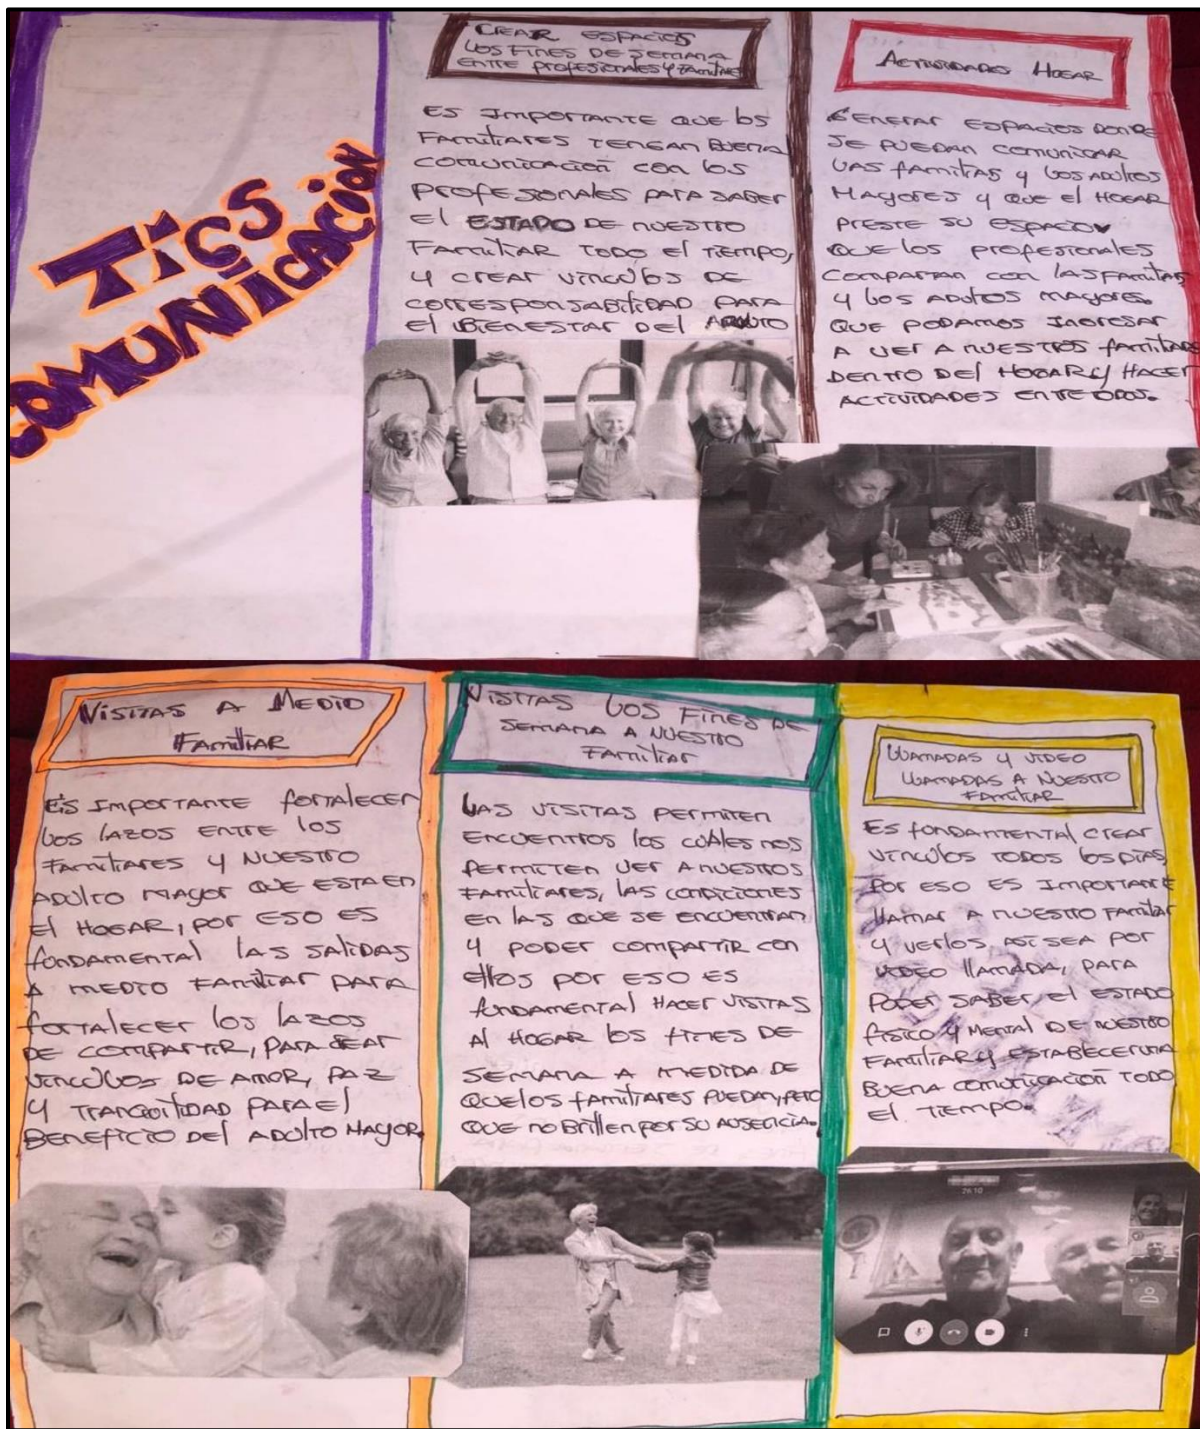 TICS
COMUNICACIÓN
CREAR ESPACIOS
LOS FINES DE SEMANA
ENTRE PROFESIONALES Y FAMILIAR
ES IMPORTANTE QUE LOS
FAMILIARES TENGAN BUENA
COMUNICACIÓN CON LOS
PROFESIONALES PARA SABER
EL ESTADO DE NUESTRO
FAMILIAR TODO EL TIEMPO,
Y CREAR VINCULOS DE
CORRESPONSABILIDAD PARA
EL BIENESTAR DEL ADULTO
ACTIVIDADES HOGAR
GENERAR ESPACIOS DONDE
SE PUEDAN COMUNICAR
LAS FAMILIAS Y LOS ADULTOS
MAYORES Y QUE EL HOGAR
PRESTE SU ESPACIO
QUE LOS PROFESIONALES
COMPARTAN CON LAS FAMILIAS
Y LOS ADULTOS MAYORES.
QUE PODAMOS INGRESAR
A VER A NUESTROS FAMILIARES
DENTRO DEL HOGAR Y HACER
ACTIVIDADES ENTRE TODOS.
VISITAS A MEDIO
FAMILIAR
ES IMPORTANTE FORTALECER
LOS LAZOS ENTRE LOS
FAMILIARES Y NUESTRO
ADULTO MAYOR QUE ESTA EN
EL HOGAR, POR ESO ES
FUNDAMENTAL LAS SALIDAS
A MEDIO FAMILIAR PARA
FORTALECER LOS LAZOS
DE COMPARTIR, PARA CREAR
VINCULOS DE AMOR, PAZ
Y TRANQUILIDAD PARA EL
BENEFICIO DEL ADULTO MAYOR.
VISITAS LOS FINES DE
SEMANA A NUESTRO
FAMILIAR
LAS VISITAS PERMITEN
ENCUENTROS LOS CUÁLES NOS
PERMITEN VER A NUESTROS
FAMILIARES, LAS CONDICIONES
EN LAS QUE SE ENCUENTRAN
Y PODER COMPARTIR CON
ELLOS POR ESO ES
FUNDAMENTAL HACER VISITAS
AL HOGAR LOS FINES DE
SEMANA A MEDIDA DE
QUE LOS FAMILIARES PUEDAN, PERO
QUE NO BRILLEN POR SU AUSENCIA.
LLAMADAS Y VIDEO
LLAMADAS A NUESTRO
FAMILIAR
ES FONDAMENTAL CREAR
VINCULOS TODOS LOS DÍAS,
POR ESO ES IMPORTANTE
LLAMAR A NUESTRO FAMILIAR
Y VERLOS ASI SEA POR
VIDEO LLAMADA, PARA
PODER SABER, EL ESTADO
FISICO Y MENTAL DE NUESTRO
FAMILIAR Y ESTABLECER UNA
BUENA COMUNICACIÓN TODO
EL TIEMPO.
26:10